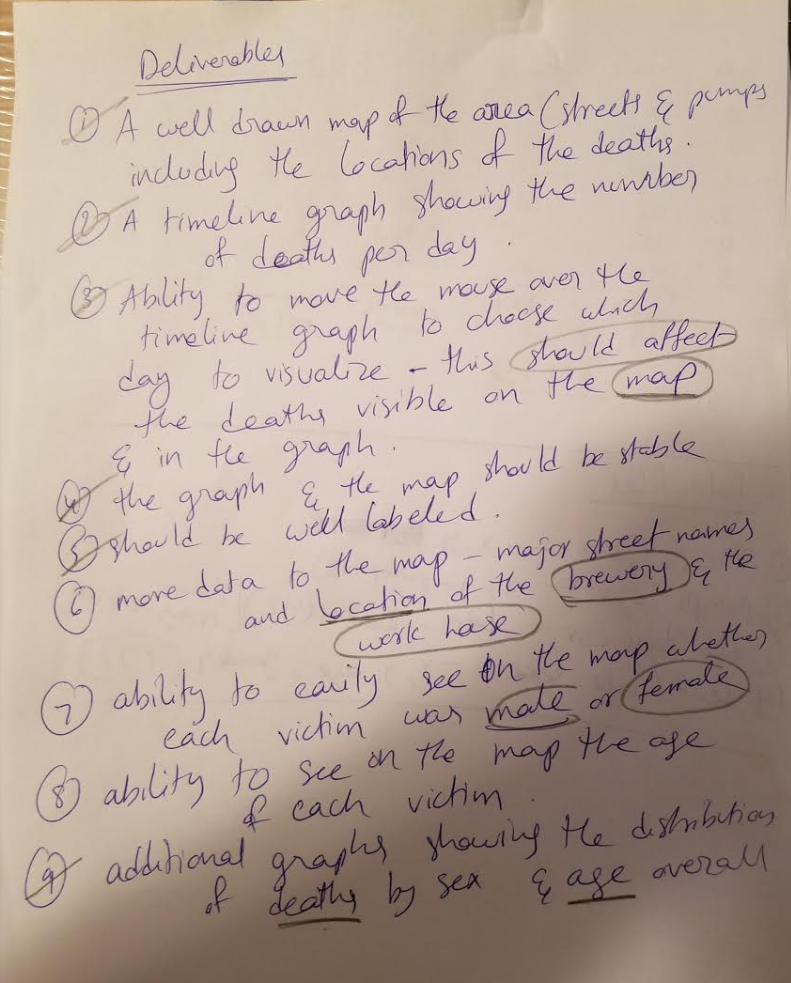 Deliverables
① A well drawn map of the area (streets & pumps
including the locations of the deaths.
② A timeline graph showing the number
of deaths per day.
③ Ability to move the mouse over the
timeline graph to choose which
day to visualize - this should affect
the deaths visible on the map
& in the graph.
④ the graph & the map should be stable
⑤ should be well labeled.
⑥ more data to the map - major street names
and location of the brewery & the
work house
⑦ ability to easily see on the map whether
each victim was male or female
⑧ ability to see on the map the age
of each victim.
⑨ additional graphs showing the distribution
of deaths by sex & age overall